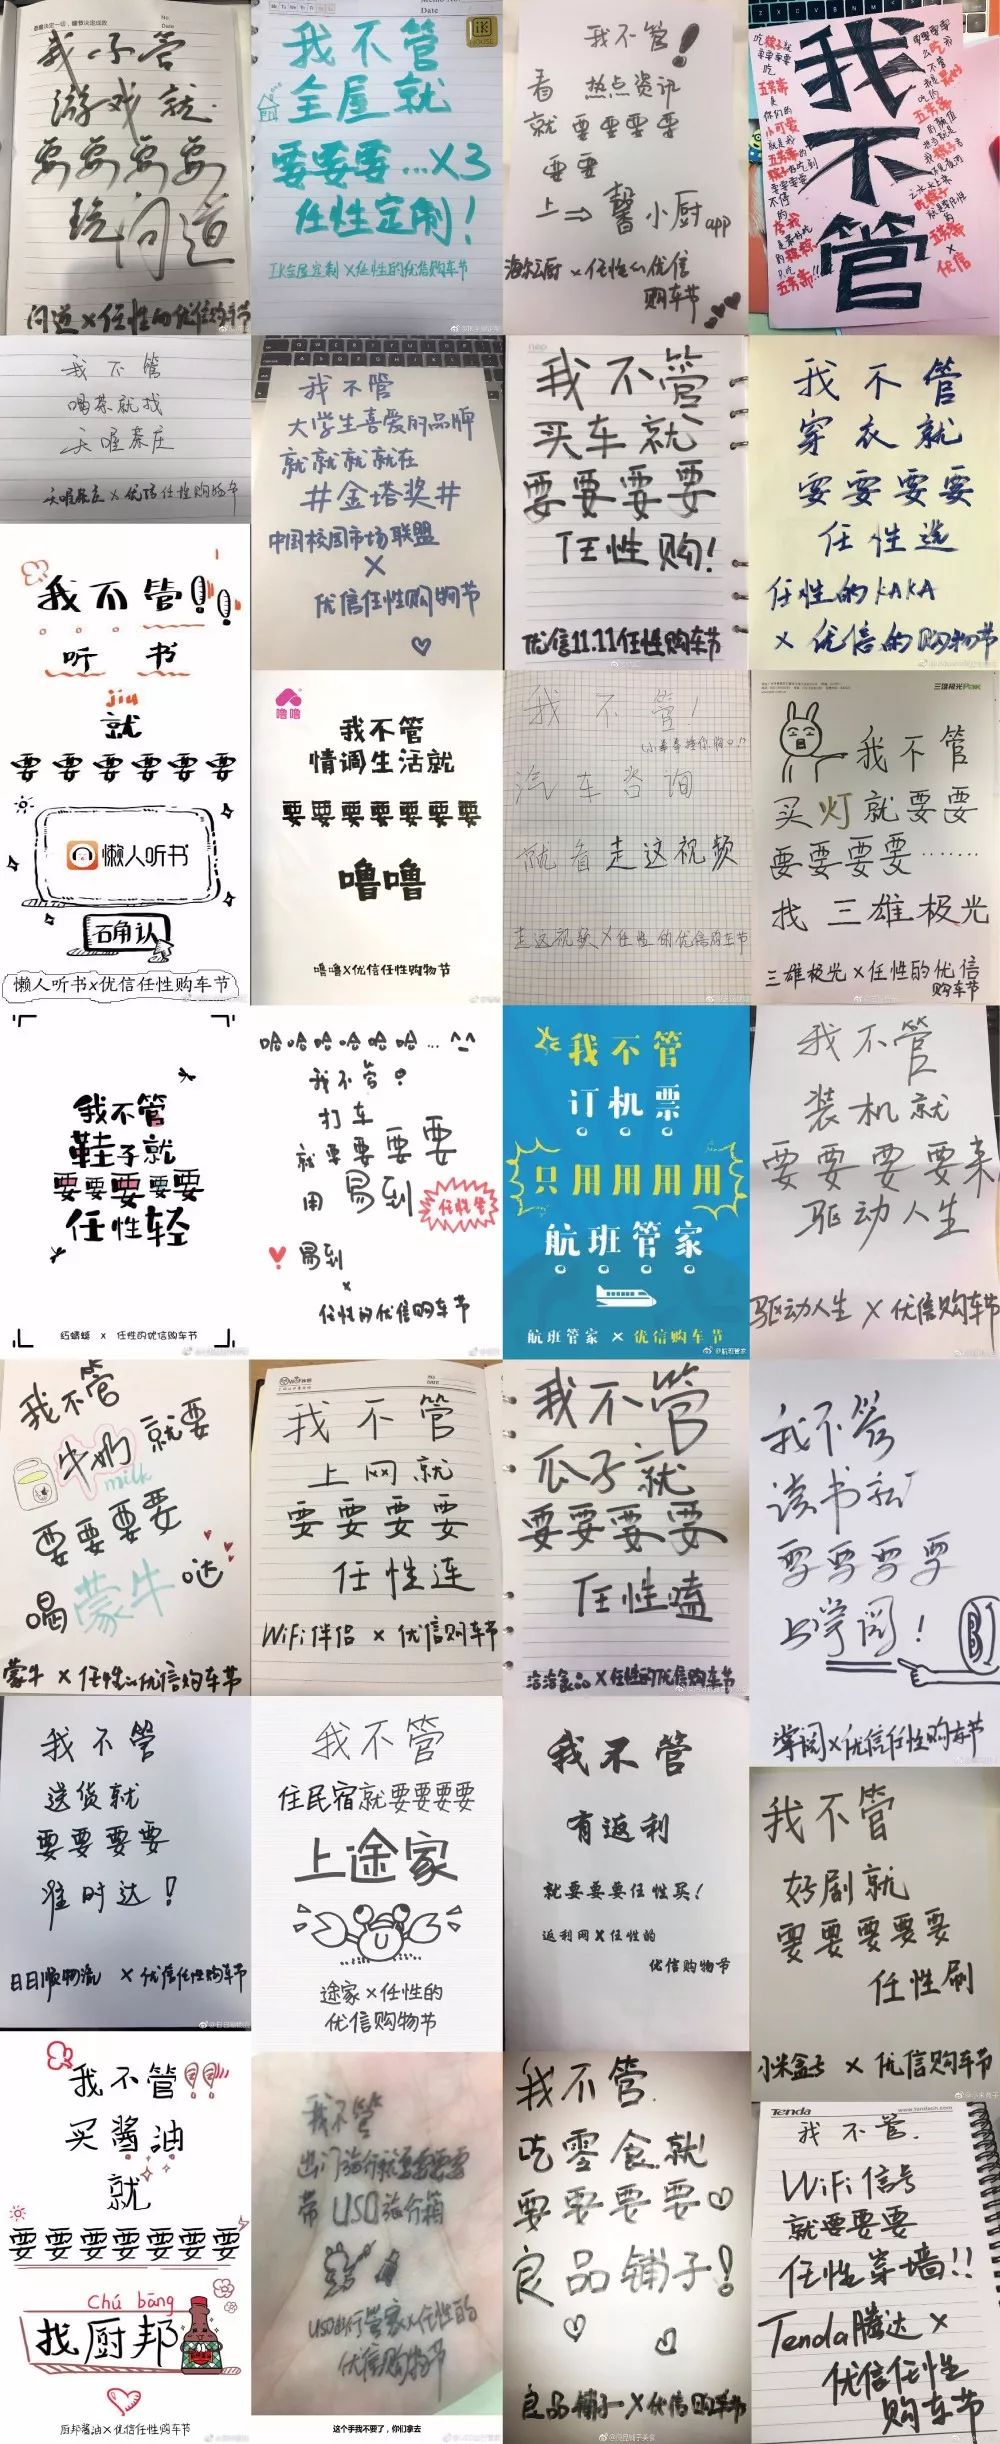 我不管
游戏就
要要要要
玩问道
问道×任性的优信购车节
我不管
全屋就
要要要...X3
任性定制!
IK全屋定制×任性的优信购车节
我不管!
看 热点资讯
就要要要要
要要
上⇒馨小厨app
海尔云厨×任性的优信
购车节
我不管
我不管
喝茶就找
天喔茶庄
天喔茶庄×优信任性购物节
我不管
大学生喜爱的品牌
就就就就在
#金塔奖#
中国校园市场联盟
×
优信任性购物节
我不管
买车就
要要要要
任性购!
优信11.11任性购车节
我不管
穿衣就
要要要要
任性选
任性的KAKA
×优信的购物节
我不管!
听书
jiu
就
要要要要要要
懒人听书
确认
懒人听书×优信任性购车节
噜噜
我不管
情调生活就
要要要要要要要
噜噜
噜噜×优信任性购物节
我不管!
汽车咨询
就看走这视频
走这视频×任性的优信购车节
三雄极光Pak
我不管
买灯就要要
要要要要……
找三雄极光
三雄极光×任性的优信
购车节
我不管
鞋子就
要要要要要
任性轻
红蜻蜓 × 任性的优信购车节
哈哈哈哈哈哈哈...^_^
我不管!
打车
就要要要要要
用易到
任性坐
易到
×
任性的优信购车节
我不管
订机票
只用用用用
航班管家
航班管家 × 优信购车节
@航班管家
我不管
装机就
要要要要来
驱动人生
驱动人生×优信购车节
我不管
牛奶就要
milk
要要要要
喝蒙牛哒
蒙牛×任性的优信购车节
我不管
上网就
要要要要
任性连
WiFi伴侣×优信购车节
我不管
瓜子就
要要要要
任性嗑
洽洽食品×任性的优信购车节
我不管
读书就
要要要要
上掌阅!
掌阅×优信任性购车节
我不管
送货就
要要要要
准时达!
日日顺物流 ×优信任性购车节
我不管
住民宿就要要要要
上途家
途家×任性的
优信购物节
我不管
有返利
就要要要任性买!
返利网×任性的
优信购物节
我不管
好剧就
要要要要要
任性刷
小米盒子×优信购车节
我不管!!
买酱油
就
要要要要要要要
Chú bāng
找厨邦
厨邦酱油×优信任性购车节
我不管
出门旅行就要要要要
带USO旅行箱
USO出行管家×任性的
优信购物节
这个手我不要了，你们拿去
我不管.
吃零食就
要要要要
良品铺子!
良品铺子×优信购车节
@良品铺子美食
Tenda
www.tendacn.com
我不管.
WiFi信号
就要要要
任性穿墙!!
Tenda腾达×
优信任性
购车节